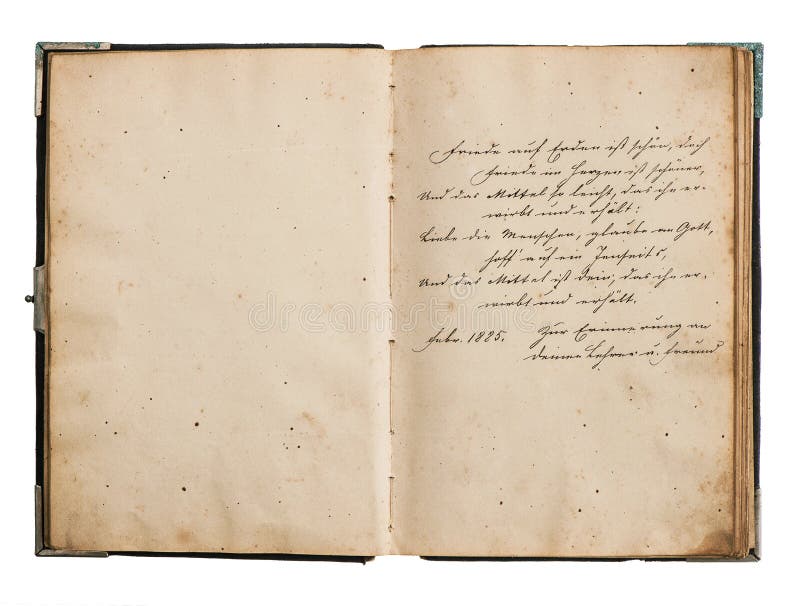 Friede auf Erden ist schön, doch
Friede im Herzen ist schöner,
Und das Mittel so leicht, das ihn er-
wirbt und erhält:
Liebe die Menschen, glaube an Gott,
hoff' auf ein Jenseits,
Und das Mittel ist dein, das ihn er-
wirbt und erhält.
Febr. 1885. Zur Erinnerung an
deinen Lehrer u. Freund
dreamstime